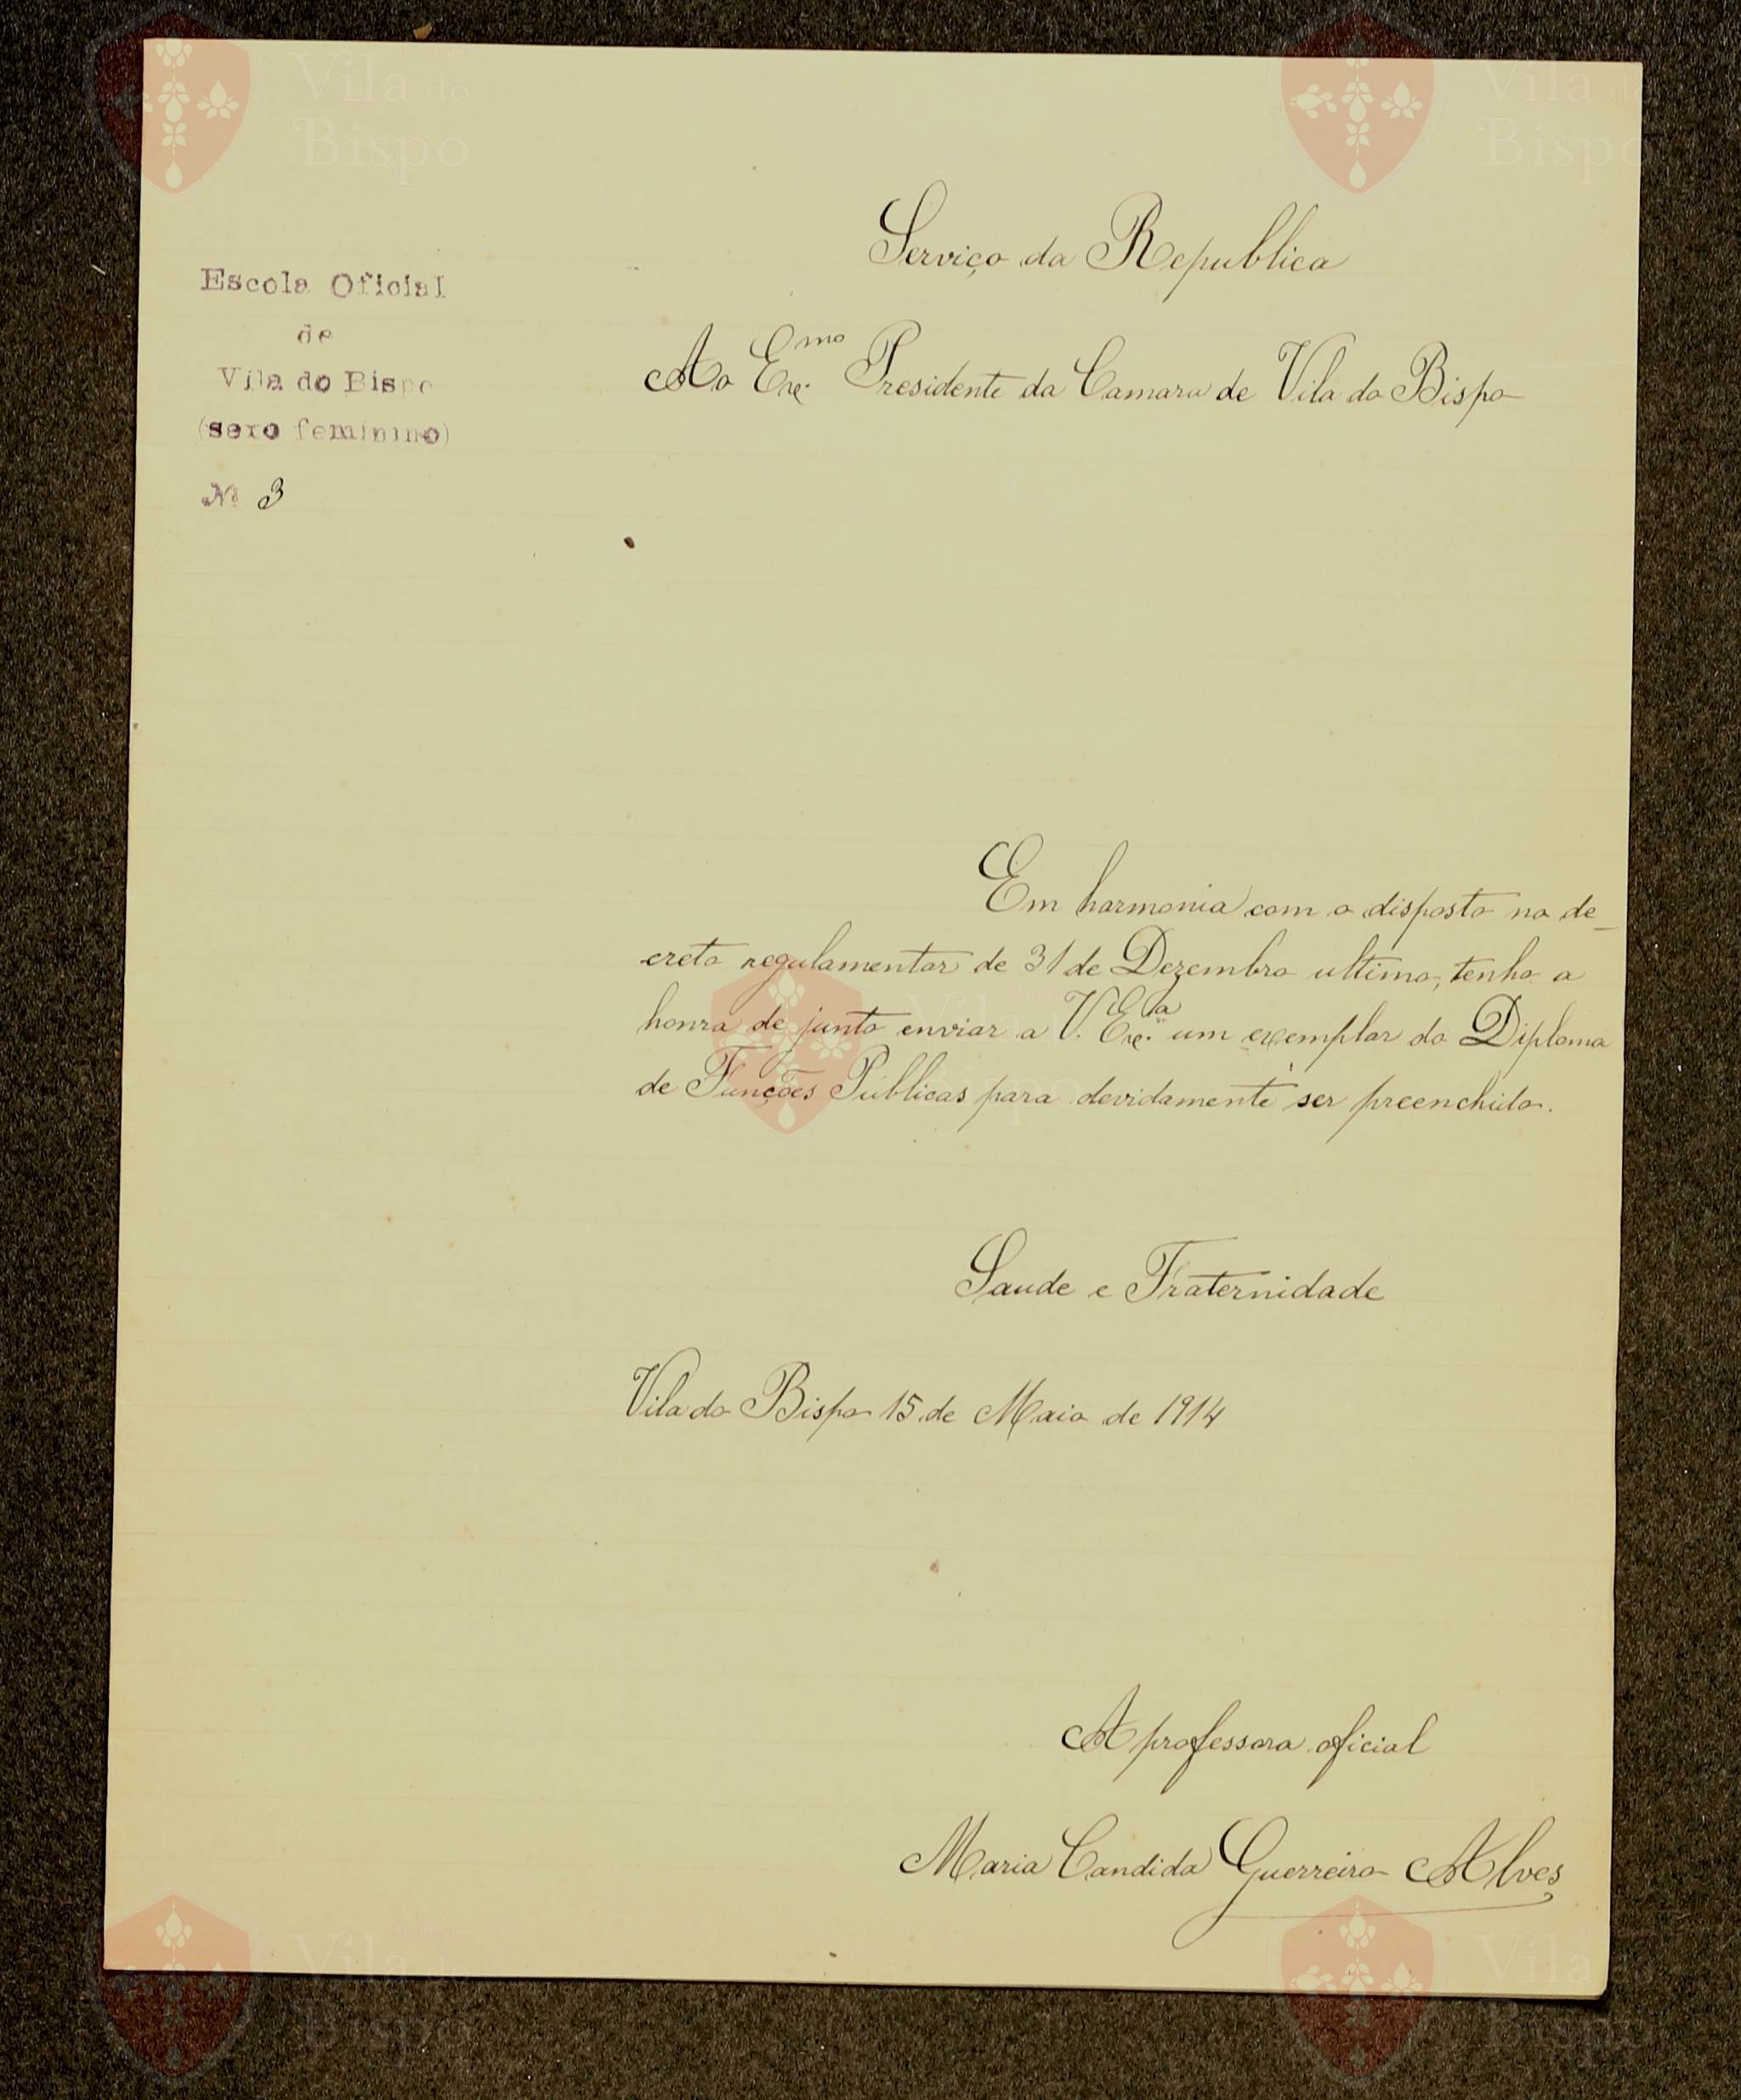 Serviço da Republica
Escola Oficial
de
Vila do Bispo
(sexo feminino)
Nº 3
Ao Exmo. Presidente da Camara de Vila do Bispo
Em harmonia com o disposto no de-
creto regulamentar de 31 de Dezembro ultimo, tenho a
honra de junto enviar a V. Exa. um exemplar do Diploma
de Funções Públicas para devidamente ser preenchido.
Saude e Fraternidade
Vila do Bispo 15 de Maio de 1914
A professora oficial
Maria Candida Guerreiro Alves
Vila do
Bispo
Vila do
Bispo
Vila do
Bispo
Vila do
Bispo
Vila do
Bispo